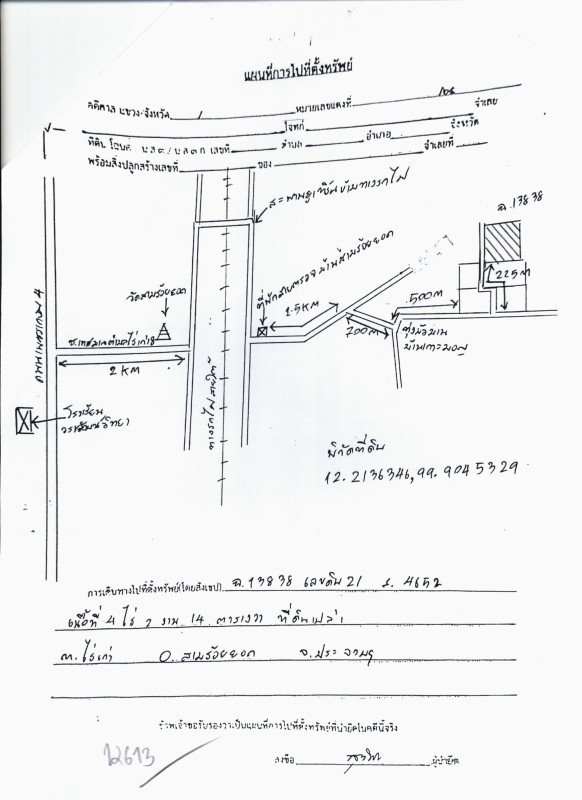 แผนที่การไปที่ตั้งทรัพย์
คดีศาล แขวง/จังหวัด / หมายเลขแดงที่
โจทก์ จำเลย
ที่ดิน โฉนด น.ส.๓/น.ส.๓ ก. เลขที่ ตำบล อำเภอ จังหวัด
พร้อมสิ่งปลูกสร้างเลขที่ ของ จำเลยที่
สะพาน ข้ามทางรถไฟ
ฉ. 13838
วัดสามร้อยยอด
ที่พักสายตรวจ บ้านสามร้อยยอด
1.5 KM
500 m
225 m
700 m
ถนนเพชรเกษม 4
ซ.เทศบาลตำบลไร่เก่า 8
2 KM
ทางรถไฟสายใต้
ทุ่งบัวบาน
บ้านเกาะมอญ
โรงเรียน
พิกัดที่ดิน
12.2136346,99.9045329
การเดินทางไปที่ตั้งทรัพย์(โดยสังเขป) ฉ. 13838 เลขดิน 21 ร. 4652
เนื้อที่ 4 ไร่ 2 งาน 14 ตารางวา ที่ดินเปล่า
ต. ไร่เก่า อ. สามร้อยยอด จ. ประจวบฯ
ข้าพเจ้าขอรับรองว่าเป็นแผนที่การไปที่ตั้งทรัพย์ที่นำยึดในคดีนี้จริง
12613
ลงชื่อ ผู้นำยึด